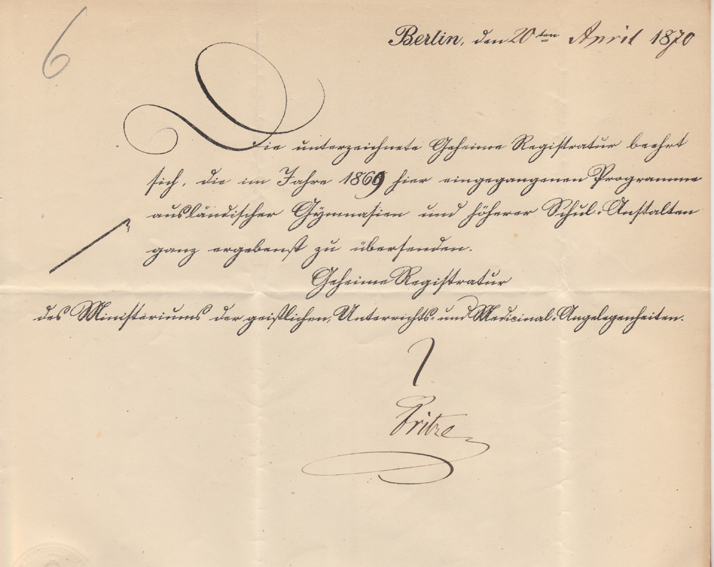 6
Berlin, den 20ten April 1870
Die unterzeichnete Geheime Registratur beehrt
sich, die im Jahre 1869 hier eingegangenen Programme
ausländischer Gymnasien und höherer Schul-Anstalten
ganz ergebenst zu übersenden.
Geheime Registratur
des Ministeriums der geistlichen, Unterrichts- und Medicinal-Angelegenheiten.
Fritze